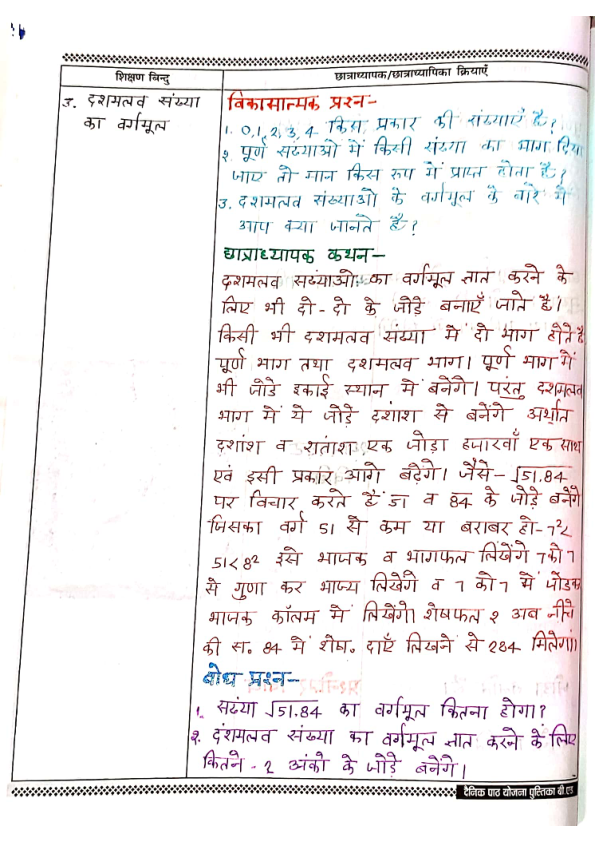 शिक्षण बिन्दु
छात्राध्यापक/छात्राध्यापिका क्रियाएँ
3. दशमलव संख्या
का वर्गमूल
विकासात्मक प्रश्न-
1. 0,1,2,3,4 किस प्रकार की संख्याएँ है?
2. पूर्ण संख्याओं में किसी संख्या का भाग दिया
जाए तो मान किस रुप में प्राप्त होता है?
3. दशमलव संख्याओं के वर्गमूल के बारे में
आप क्या जानते है?
छात्राध्यापक कथन-
दशमलव संख्याओं का वर्गमूल ज्ञात करने के
लिए भी दो-दो के जोड़े बनाएँ जाते है।
किसी भी दशमलव संख्या में दो भाग होते है
पूर्ण भाग तथा दशमलव भाग। पूर्ण भाग में
भी जोडे इकाई स्थान में बनेंगे। परंतु दशमलव
भाग में ये जोड़े दशांश से बनेंगे अर्थात
दशांश व शतांश एक जोड़ा हजारवाँ एक साथ
एवं इसी प्रकार आगे बढ़ेगें। जैसे- √51.84
पर विचार करते हैं 51 व 84 के जोड़े बनेंगे
जिसका वर्ग 51 से कम या बराबर हो-7²<
51<8² इसे भाजक व भागफल लिखेंगे 7 को 7
से गुणा कर भाज्य लिखेंगे व 7 को 7 में जोडकर
भाजक कॉलम में लिखेंगे। शेषफल 2 अब नीचे
की स. 84 में शेष. दाएँ लिखने से 284 मिलेगा।
बोध प्रश्न-
1. संख्या √51.84 का वर्गमूल कितना होगा?
2. दशमलव संख्या का वर्गमूल ज्ञात करने के लिए
कितने-2 अंको के जोड़े बनेंगे।
दैनिक पाठ योजना पुस्तिका बी.एड